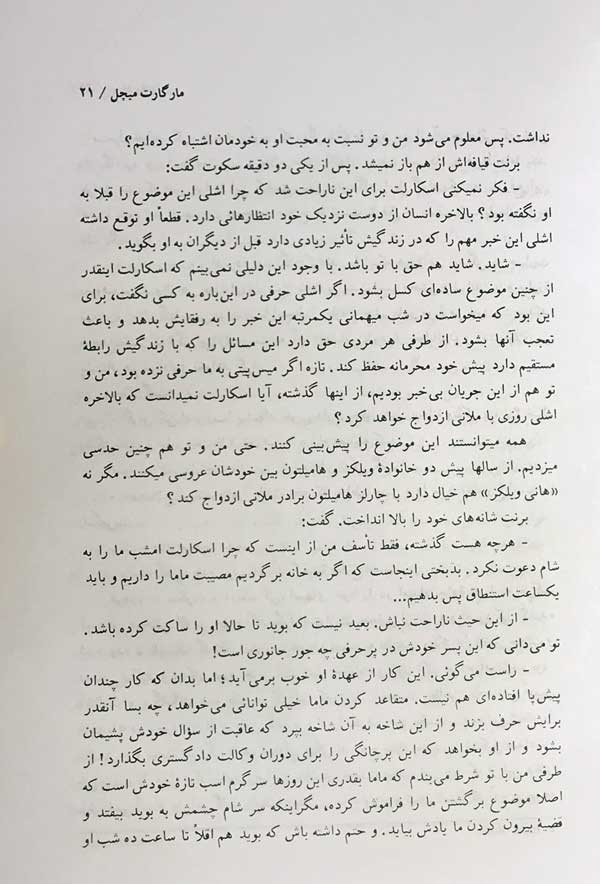 مارگارت میچل / ۲۱
نداشت. پس معلوم می‌شود من و تو نسبت به محبت او به خودمان اشتباه کرده‌ایم؟
برنت قیافه‌اش از هم باز نمیشد. پس از یکی دو دقیقه سکوت گفت:
- فکر نمیکنی اسکارلت برای این ناراحت شد که چرا اشلی این موضوع را قبلا به
او نگفته بود؟ بالاخره انسان از دوست نزدیک خود انتظارهائی دارد. قطعاً او توقع داشته
اشلی این خبر مهم را که در زندگیش تأثیر زیادی دارد قبل از دیگران به او بگوید.
- شاید. شاید هم حق با تو باشد. با وجود این دلیلی نمی‌بینم که اسکارلت اینقدر
از چنین موضوع ساده‌ای کسل بشود. اگر اشلی حرفی در این‌باره به کسی نگفت، برای
این بود که میخواست در شب میهمانی یکمرتبه این خبر را به رفقایش بدهد و باعث
تعجب آنها بشود. از طرفی هر مردی حق دارد این مسائل را که با زندگیش رابطهٔ
مستقیم دارد پیش خود محرمانه حفظ کند. تازه اگر میس‌پیتی به ما حرفی نزده بود، من و
تو هم از این جریان بی‌خبر بودیم، از اینها گذشته، آیا اسکارلت نمیدانست که بالاخره
اشلی روزی با ملانی ازدواج خواهد کرد؟
همه میتوانستند این موضوع را پیش‌بینی کنند. حتی من و تو هم چنین حدسی
میزدیم. از سالها پیش دو خانوادهٔ ویلکز و هامیلتون بین خودشان عروسی میکنند. مگر نه
«هانی ویلکز» هم خیال دارد با چارلز هامیلتون برادر ملانی ازدواج کند؟
برنت شانه‌های خود را بالا انداخت. گفت:
- هرچه هست گذشته، فقط تأسف من از اینست که چرا اسکارلت امشب ما را به
شام دعوت نکرد. بدبختی اینجاست که اگر به خانه برگردیم مصیبت ماما را داریم و باید
یکساعت استنطاق پس بدهیم...
- از این حیث ناراحت نباش. بعید نیست که بوید تا حالا او را ساکت کرده باشد.
تو می‌دانی که این پسر خودش در پرحرفی چه جور جانوری است!
- راست می‌گوئی. این کار از عهدهٔ او خوب برمی‌آید؛ اما بدان که کار چندان
پیش‌پا افتاده‌ای هم نیست. متقاعد کردن ماما خیلی توانائی می‌خواهد، چه بسا آنقدر
برایش حرف بزند و از این شاخه به آن شاخه بپرد که عاقبت از سؤال خودش پشیمان
بشود و از او بخواهد که این پرچانگی را برای دوران وکالت دادگستری بگذارد! از
طرفی من با تو شرط می‌بندم که ماما بقدری این روزها سرگرم اسب تازهٔ خودش است که
اصلا موضوع برگشتن ما را فراموش کرده، مگراینکه سر شام چشمش به بوید بیفتد و
قضیهٔ بیرون کردن ما یادش بیاید. و حتم داشته باش که بوید هم اقلاً تا ساعت ده شب او